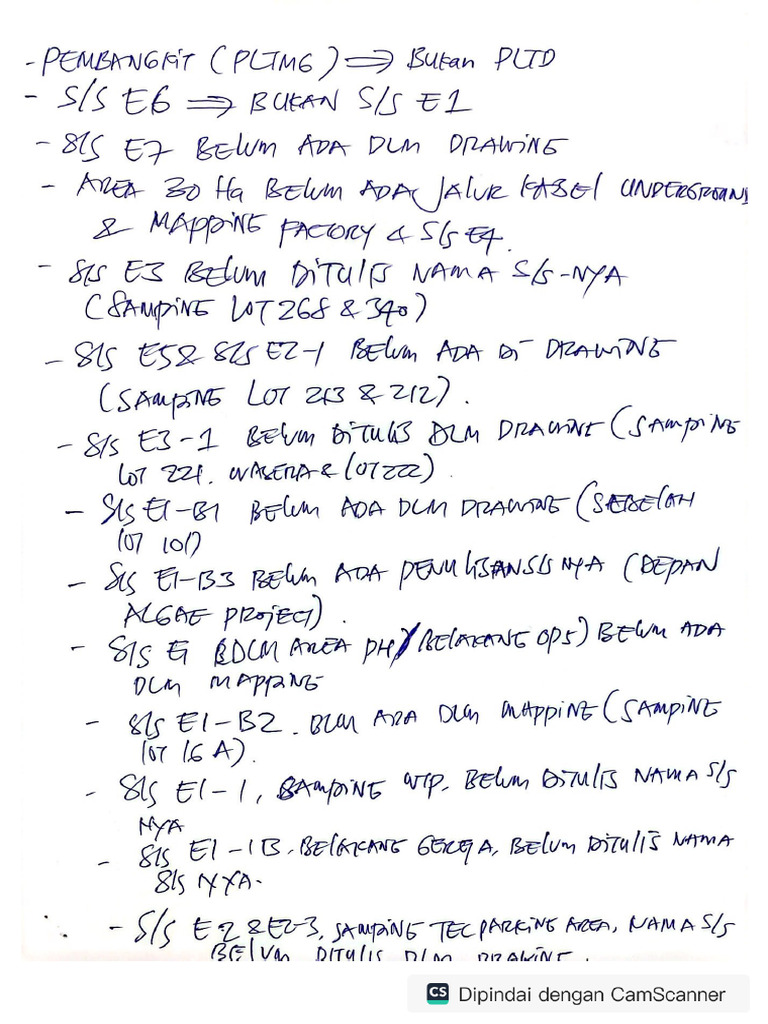 - PEMBANGKIT (PLTMG) ⇒ BUKAN PLTD
- S/S E6 ⇒ BUKAN S/S E1
- S/S E7 BELUM ADA DLM DRAWING
- AREA 30 Ha BELUM ADA JALUR KABEL UNDERGROUND
& MAPPING FACTORY & S/S E4.
- S/S E3 BELUM DITULIS NAMA S/S-NYA
(SAMPING LOT 268 & 340)
- S/S E5 & S/S E2-1 BELUM ADA DI DRAWING
(SAMPING LOT 213 & 212).
- S/S E3-1 BELUM DITULIS DLM DRAWING (SAMPING
LOT 221. & LOT 222).
- S/S E1-B1 BELUM ADA DLM DRAWING (SEBELAH
LOT 101)
- S/S E1-B3 BELUM ADA PENULISAN S/S NYA (DEPAN
ALGAE PROJECT).
- S/S DLM AREA PH (BELAKANG OPS) BELUM ADA
DLM MAPPING
- S/S E1-B2. BLM ADA DLM MAPPING (SAMPING
LOT 16 A).
- S/S E1-1, SAMPING WTP. BELUM DITULIS NAMA S/S
NYA
- S/S E1-1B. BELAKANG GEREJA, BELUM DITULIS NAMA
S/S NYA.
- S/S E2 & E2-3, SAMPING TEC PARKING AREA, NAMA S/S
BELUM DITULIS DLM DRAWING.
CS Dipindai dengan CamScanner